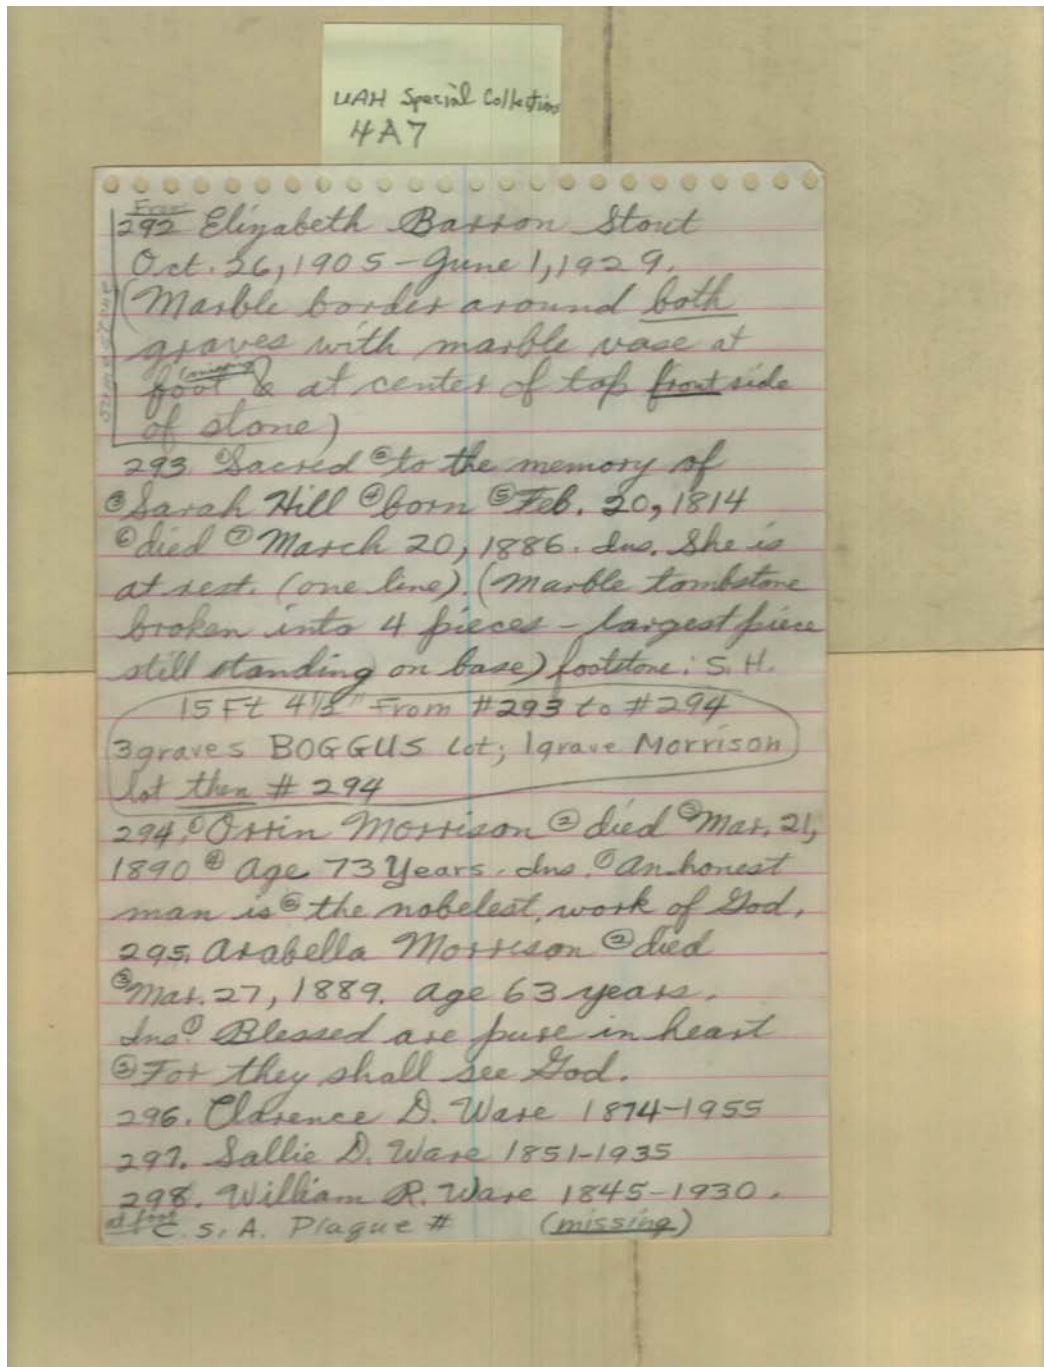 UAH Special Collections
4A7
Front
292 Elizabeth Barron Stout
Oct. 26, 1905 - June 1, 1929.
(Marble border around both
graves with marble vase at
(missing)
foot & at center of top front side
of stone)
same stone
293 ①Sacred ②to the memory of
③Sarah Hill ④born ⑤Feb. 20, 1814
⑥died ⑦March 20, 1886. Ins. She is
at rest. (one line). (Marble tombstone
broken into 4 pieces - largest piece
still standing on base) footstone: S. H.
15 Ft 4½" From #293 to #294
3 graves BOGGUS Lot; 1 grave Morrison
lot then # 294
294. ①Orrin Morrison ② died ③Mar. 21,
1890 ④ Age 73 Years. Ins. ①An honest
man is ② the nobelest work of God.
295. Arabella Morrison ② died
③Mar. 27, 1889. Age 63 years.
Ins① Blessed are pure in heart
② For they shall see God.
296. Clarence D. Ware 1874-1955
297. Sallie D. Ware 1851-1935
298. William R. Ware 1845-1930.
at foot C. S. A. Plague # (missing)